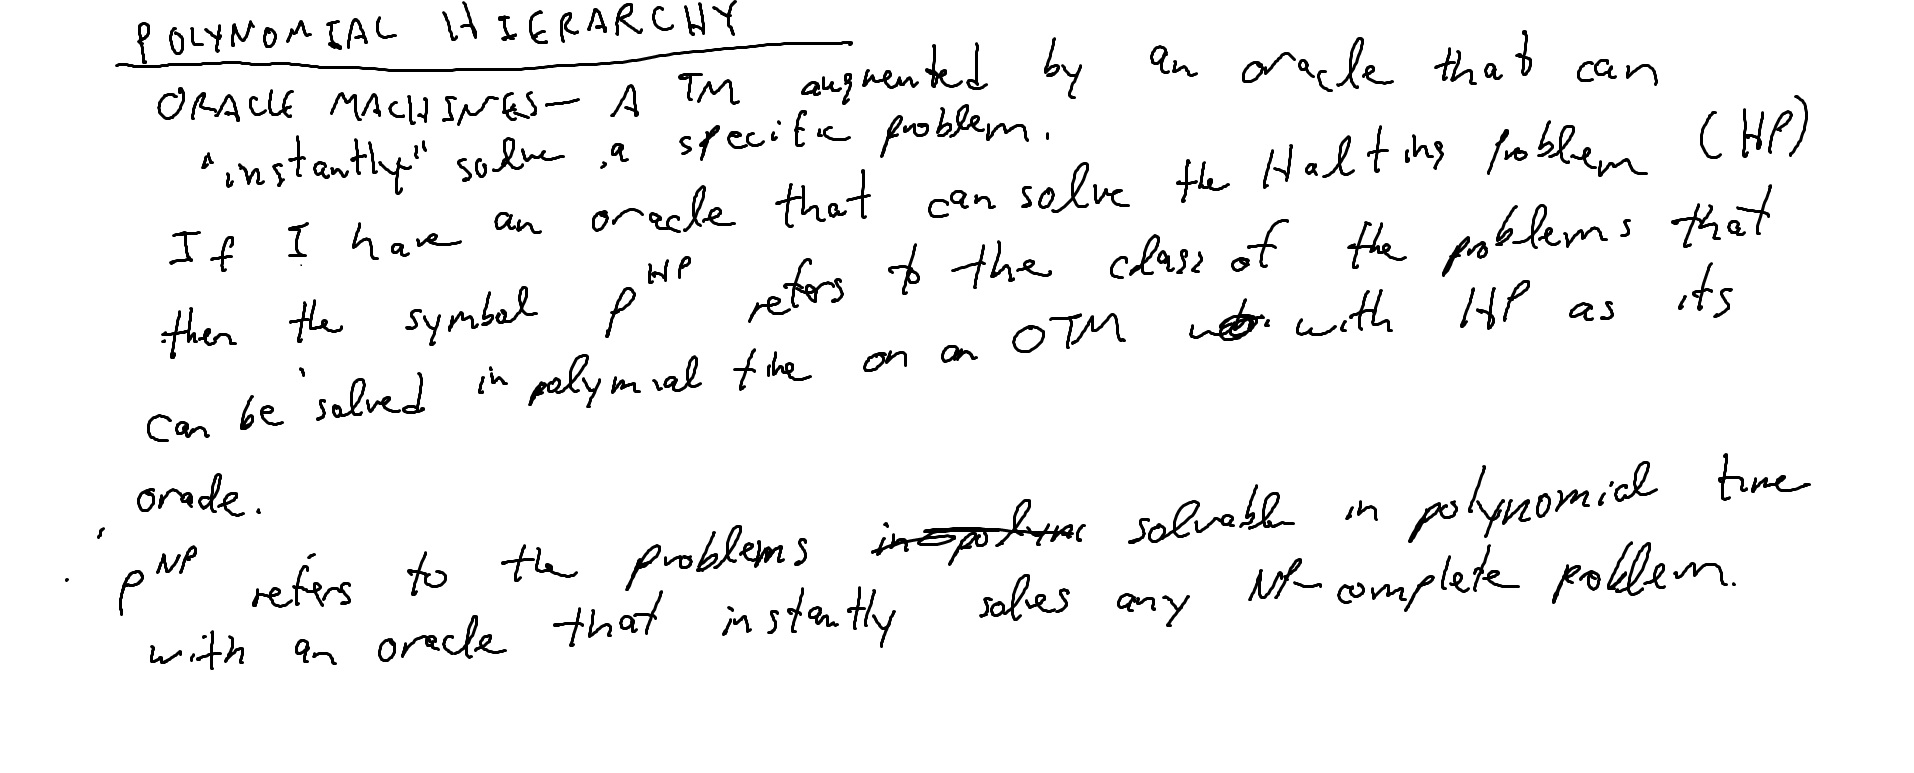 POLYNOMIAL HIERARCHY
ORACLE MACHINES— A TM augmented by an oracle that can
"instantly" solve a specific problem.
If I have an oracle that can solve the Halting problem (HP)
then the symbol P^HP refers to the class of the problems that
can be solved in polymial time on an OTM with HP as its
oracle.
P^NP refers to the problems solvable in polynomial time
with an oracle that instantly solves any NP-complete problem.